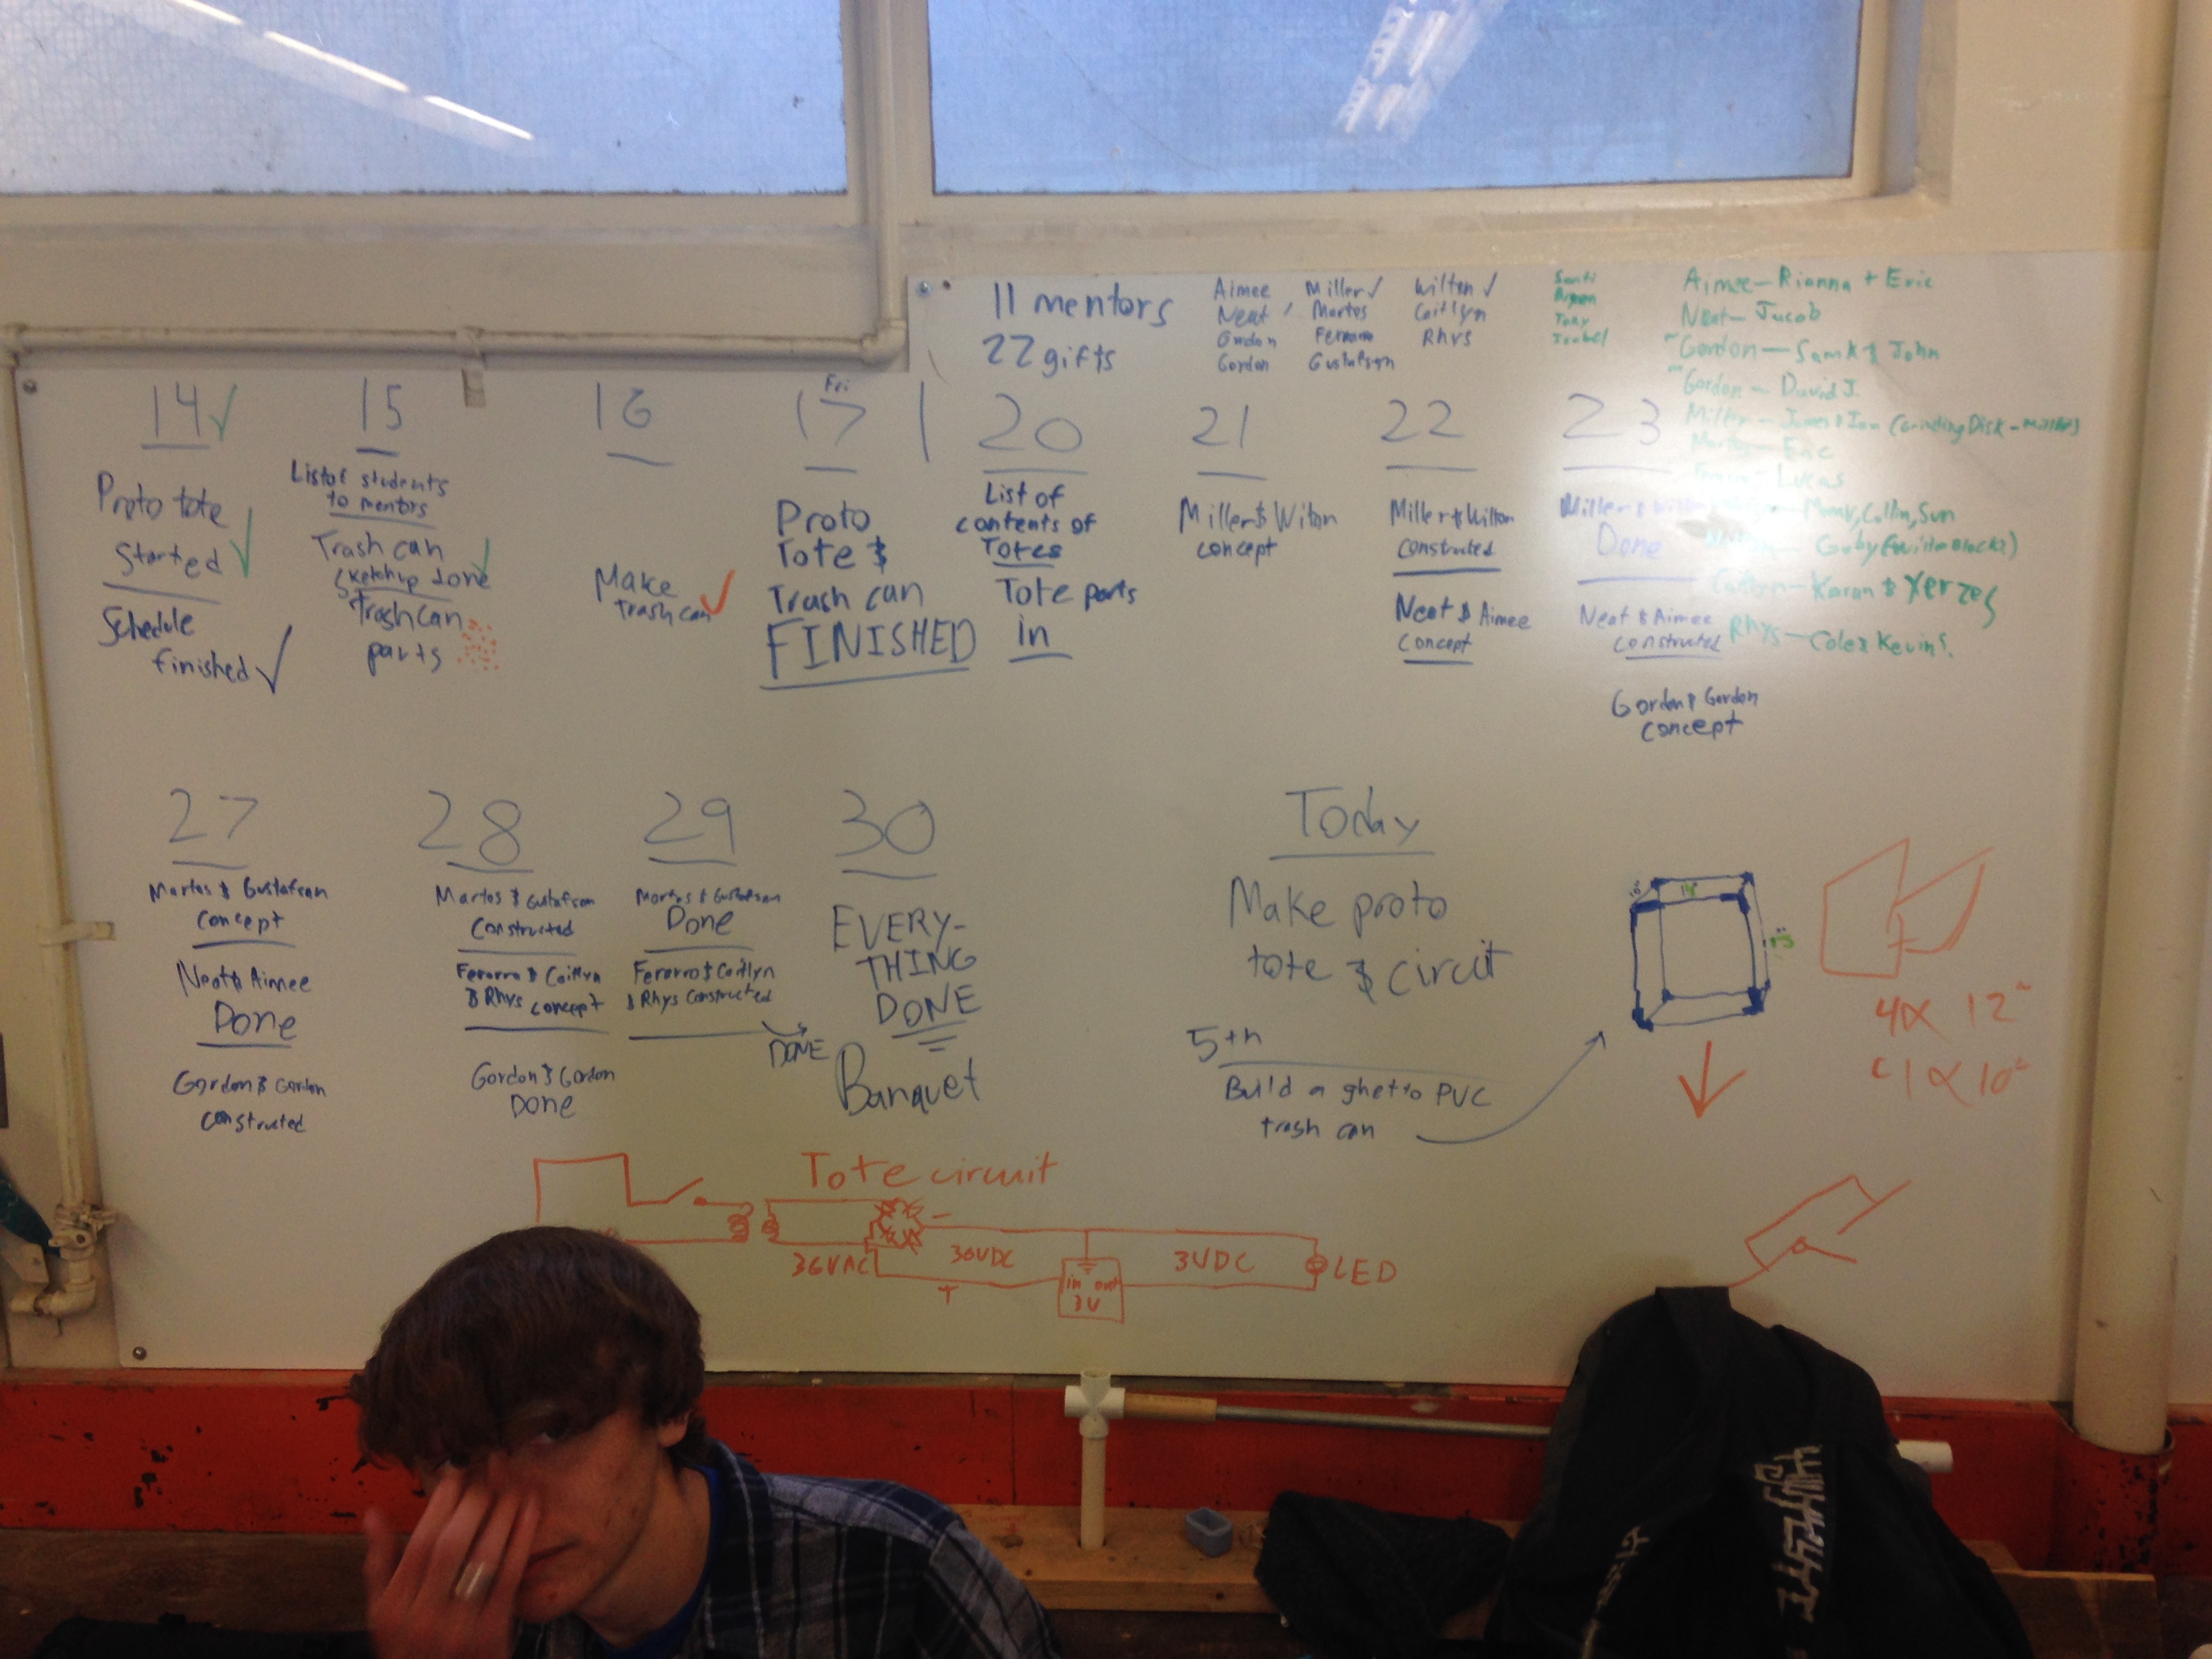 11 mentors
22 gifts
Aimee
Neat
Gordon
Gordon
Miller ✓
Martos
Gustafson
Wilton ✓
Caitlyn
Rhys
Tony
Isabel
Aimee - Rianna + Eric
Neat - Jacob
Gordon - Sam K & John
Gordon - David J.
Miller - James & Ian (Grinding Disk - Miller)
Eric
Lucas
Collin, Sun
Karan & Xerzes
Rhys - Cole & Kevin S.
14 ✓
Proto tote
Started ✓
Schedule
finished ✓
15
List of students
to mentors
Trash can
sketchup done
Trash can
parts
16
Make
trash can ✓
Fri
17
Proto
Tote &
Trash can
FINISHED
20
List of
contents of
Totes
Tote parts
in
21
Miller & Wilton
concept
22
Miller & Wilton
constructed
Neat & Aimee
concept
23
Miller &
Done
Neat & Aimee
constructed
Gordon & Gordon
concept
27
Martos & Gustafson
concept
Neat & Aimee
Done
Gordon & Gordon
constructed
28
Martos & Gustafson
Constructed
Ferarro & Caitlyn
& Rhys concept
Gordon & Gordon
DONE
29
Martos & Gustafson
Done
Ferarro & Caitlyn
& Rhys Constructed
DONE
30
EVERY-
THING
DONE
Banquet
Today
Make proto
tote & circuit
5th
Build a ghetto PVC
trash can
4x 12"
10"
Tote circuit
36VAC
36VDC
3VDC
LED
in out
3V